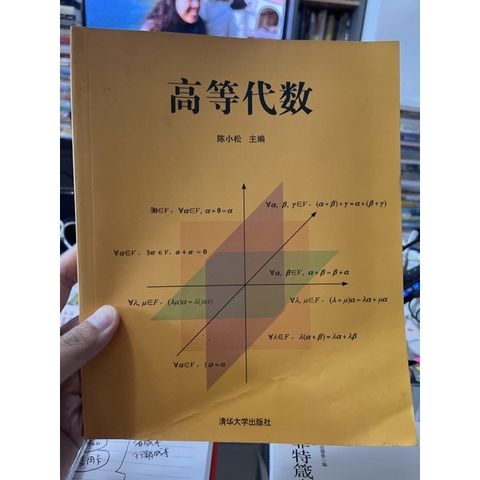 高等代数
陈小松 主编
∃θ∈V，∀α∈V, α+θ=α
∀α, β, γ∈V，(α+β)+γ=α+(β+γ)
∀α∈V，∃α'∈V，α+α'=0
∀α, β∈V，α+β=β+α
∀λ, μ∈F，(λμ)α=λ(μα)
∀λ, μ∈F，(λ+μ)α=λα+μα
∀λ∈F，λ(α+β)=λα+λβ
∀α∈V，1α=α
清华大学出版社
特箴